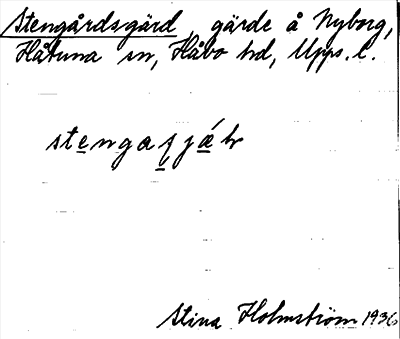 Stengårdsgärd, gärde å Nyborg,
Håtuna sn, Håbo hd, Upps. l.
Stina Holmström 1936